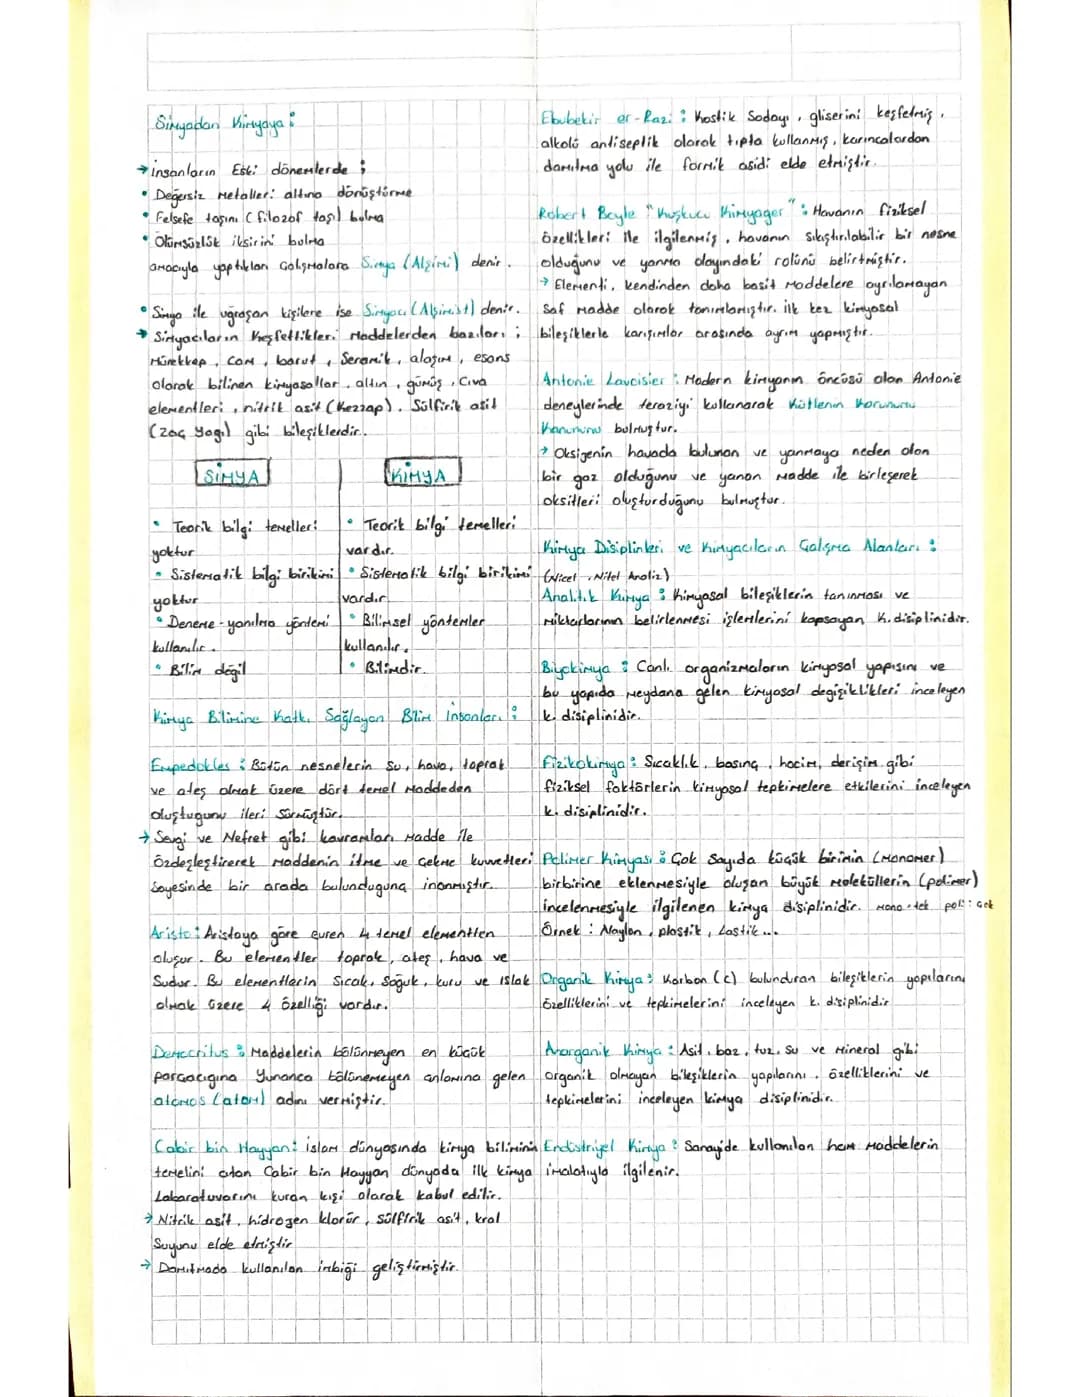 Simyadan Kimyaya :
→ İnsanların Eski dönemlerde ;
• Değersiz Metalleri altına dönüştürme
• Felsefe taşını (filozof taşı) bulma
• Ölümsüzlük iksirini bulma
amacıyla yaptıkları Çalışmalara Simya (Alşimi) denir.
• Simya ile uğraşan kişilere ise Simyacı (Alşimist) denir.
→ Simyacıların Keşfettikleri Maddelerden bazıları ;
Mürekkep, Cam, barut, Seramik, alaşım, esans
olarak bilinen kimyasallar, altın, gümüş, Cıva
elementleri, nitrik asit (Kezzap). Sülfirik asit
(zaç Yağı) gibi bileşiklerdir.
SİMYA
• Teorik bilgi temelleri
yoktur
• Sistematik bilgi birikimi
yoktur
• Deneme-yanılma yöntemi
kullanılır.
• Bilim değil
KİMYA
• Teorik bilgi temelleri
vardır.
• Sistematik bilgi birikimi
vardır
• Bilimsel yöntemler
kullanılır.
• Bilimdir.
Kimya Bilimine Katkı Sağlayan Bilim İnsanları :
Empedokles : Bütün nesnelerin Su, hava, toprak
ve ateş olmak üzere dört temel Maddeden
oluştuğunu ileri Sürmüştür.
→ Sevgi ve Nefret gibi kavramları Madde ile
özdeşleştirerek Maddenin itme ve Çekme kuvvetleri
Sayesinde bir arada bulunduguna inanmıştır.
Aristo : Aristoya göre evren 4 temel elementten
oluşur. Bu elementler toprak, ateş, hava ve
Sudur. Bu elementlerin Sıcak, Soğuk, kuru ve ıslak
olmak üzere 4 özelliği vardır.
Democritus : Maddelerin bölünmeyen en küçük
parçacığına Yunanca bölünemeyen anlamına gelen
atomos (atom) adını vermiştir.
Cabir bin Hayyan : İslam dünyasında kimya biliminin
temelini atan Cabir bin Hayyan dünyada ilk kimya
Labaratuvarını kuran kişi olarak kabul edilir.
→ Nitrik asit, hidrojen klorür, sülfirik asit, kral
Suyunu elde etmiştir
→ Damıtmada kullanılan imbiği geliştirmiştir.
Ebubekir er-Razi : Kostik Sodayı, gliserini keşfetmiş,
alkolü antiseptik olarak tıpta kullanmış, karıncalardan
damıtma yolu ile formik asidi elde etmiştir.
Robert Boyle "Kuşkucu Kimyager" : Havanın fiziksel
özellikleri ile ilgilenmiş, havanın sıkıştırılabilir bir nesne
olduğunu ve yanma olayındaki rolünü belirtmiştir.
→ Elementi, kendinden daha basit Maddelere ayrılamayan
Saf Madde olarak tanımlamıştır. ilk kez kimyasal
bileşiklerle karışımlar arasında ayrım yapmıştır.
Antonie Lavoisier : Modern kimyanın öncüsü olan Antonie
deneylerinde teraziyi kullanarak Kütlenin Korunumu
Kanununu bulmuştur.
→ Oksijenin havada bulunan ve yanmaya neden olan
bir gaz olduğunu ve yanan Madde ile birleşerek
oksitleri oluşturduğunu bulmuştur.
Kimya Disiplinleri ve Kimyacıların Çalışma Alanları :
(Nicel, Nitel Analiz)
Analitik Kimya : Kimyasal bileşiklerin tanınması ve
Miktarlarının belirlenmesi işlemlerini kapsayan K. disiplinidir.
Biyokimya : Canlı organizmaların kimyasal yapısını ve
bu yapıda Meydana gelen kimyasal degişiklikleri inceleyen
k. disiplinidir.
Fizikokimya : Sıcaklık, basınç, hacim, derişim gibi
fiziksel faktörlerin kimyasal tepkimelere etkilerini inceleyen
k. disiplinidir.
Polimer Kimyası : Çok Sayıda küçük birimin (Monomer)
birbirine eklenmesiyle oluşan büyük Moleküllerin (polimer)
incelenmesiyle ilgilenen kimya disiplinidir. Mono : tek poli : Çok
Örnek : Naylon, plastik, Lastik...
Organik Kimya : Karbon (c) bulunduran bileşiklerin yapılarını
özelliklerini ve tepkimelerini inceleyen k. disiplinidir
Anorganik Kimya : Asit, baz, tuz, su ve Mineral gibi
organik olmayan bileşiklerin yapılarını, özelliklerini ve
tepkimelerini inceleyen kimya disiplinidir.
Endüstriyel Kimya : Sanayide kullanılan ham Maddelerin
imalatıyla ilgilenir.